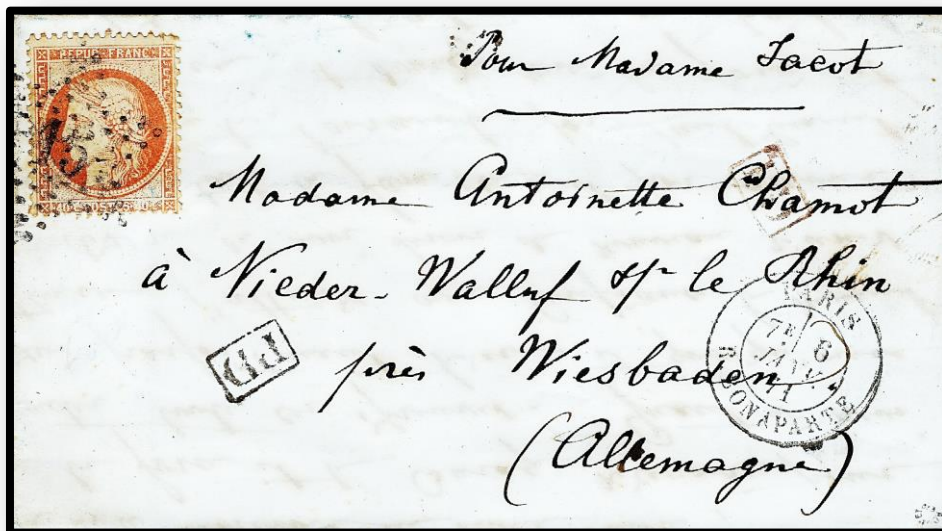 REPUB FRANC
Pour Madame Jacot
Madame Antoinette Chamot
à Nieder-Walluf s/ le Rhin
PD
près Wiesbaden
(Allemagne)
PARIS
7E 6
JANV.
71
R. BONAPARTE